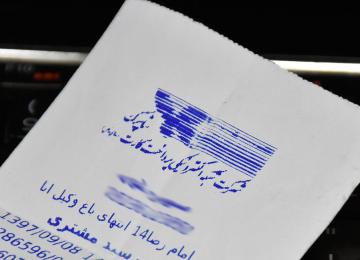 شرکت شبکه الکترونیکی پرداخت کارت شاپرک
امام رضا14 انتهای باغ وکیل ابا
1397/09/08 14
رسید مشتری
286596/0